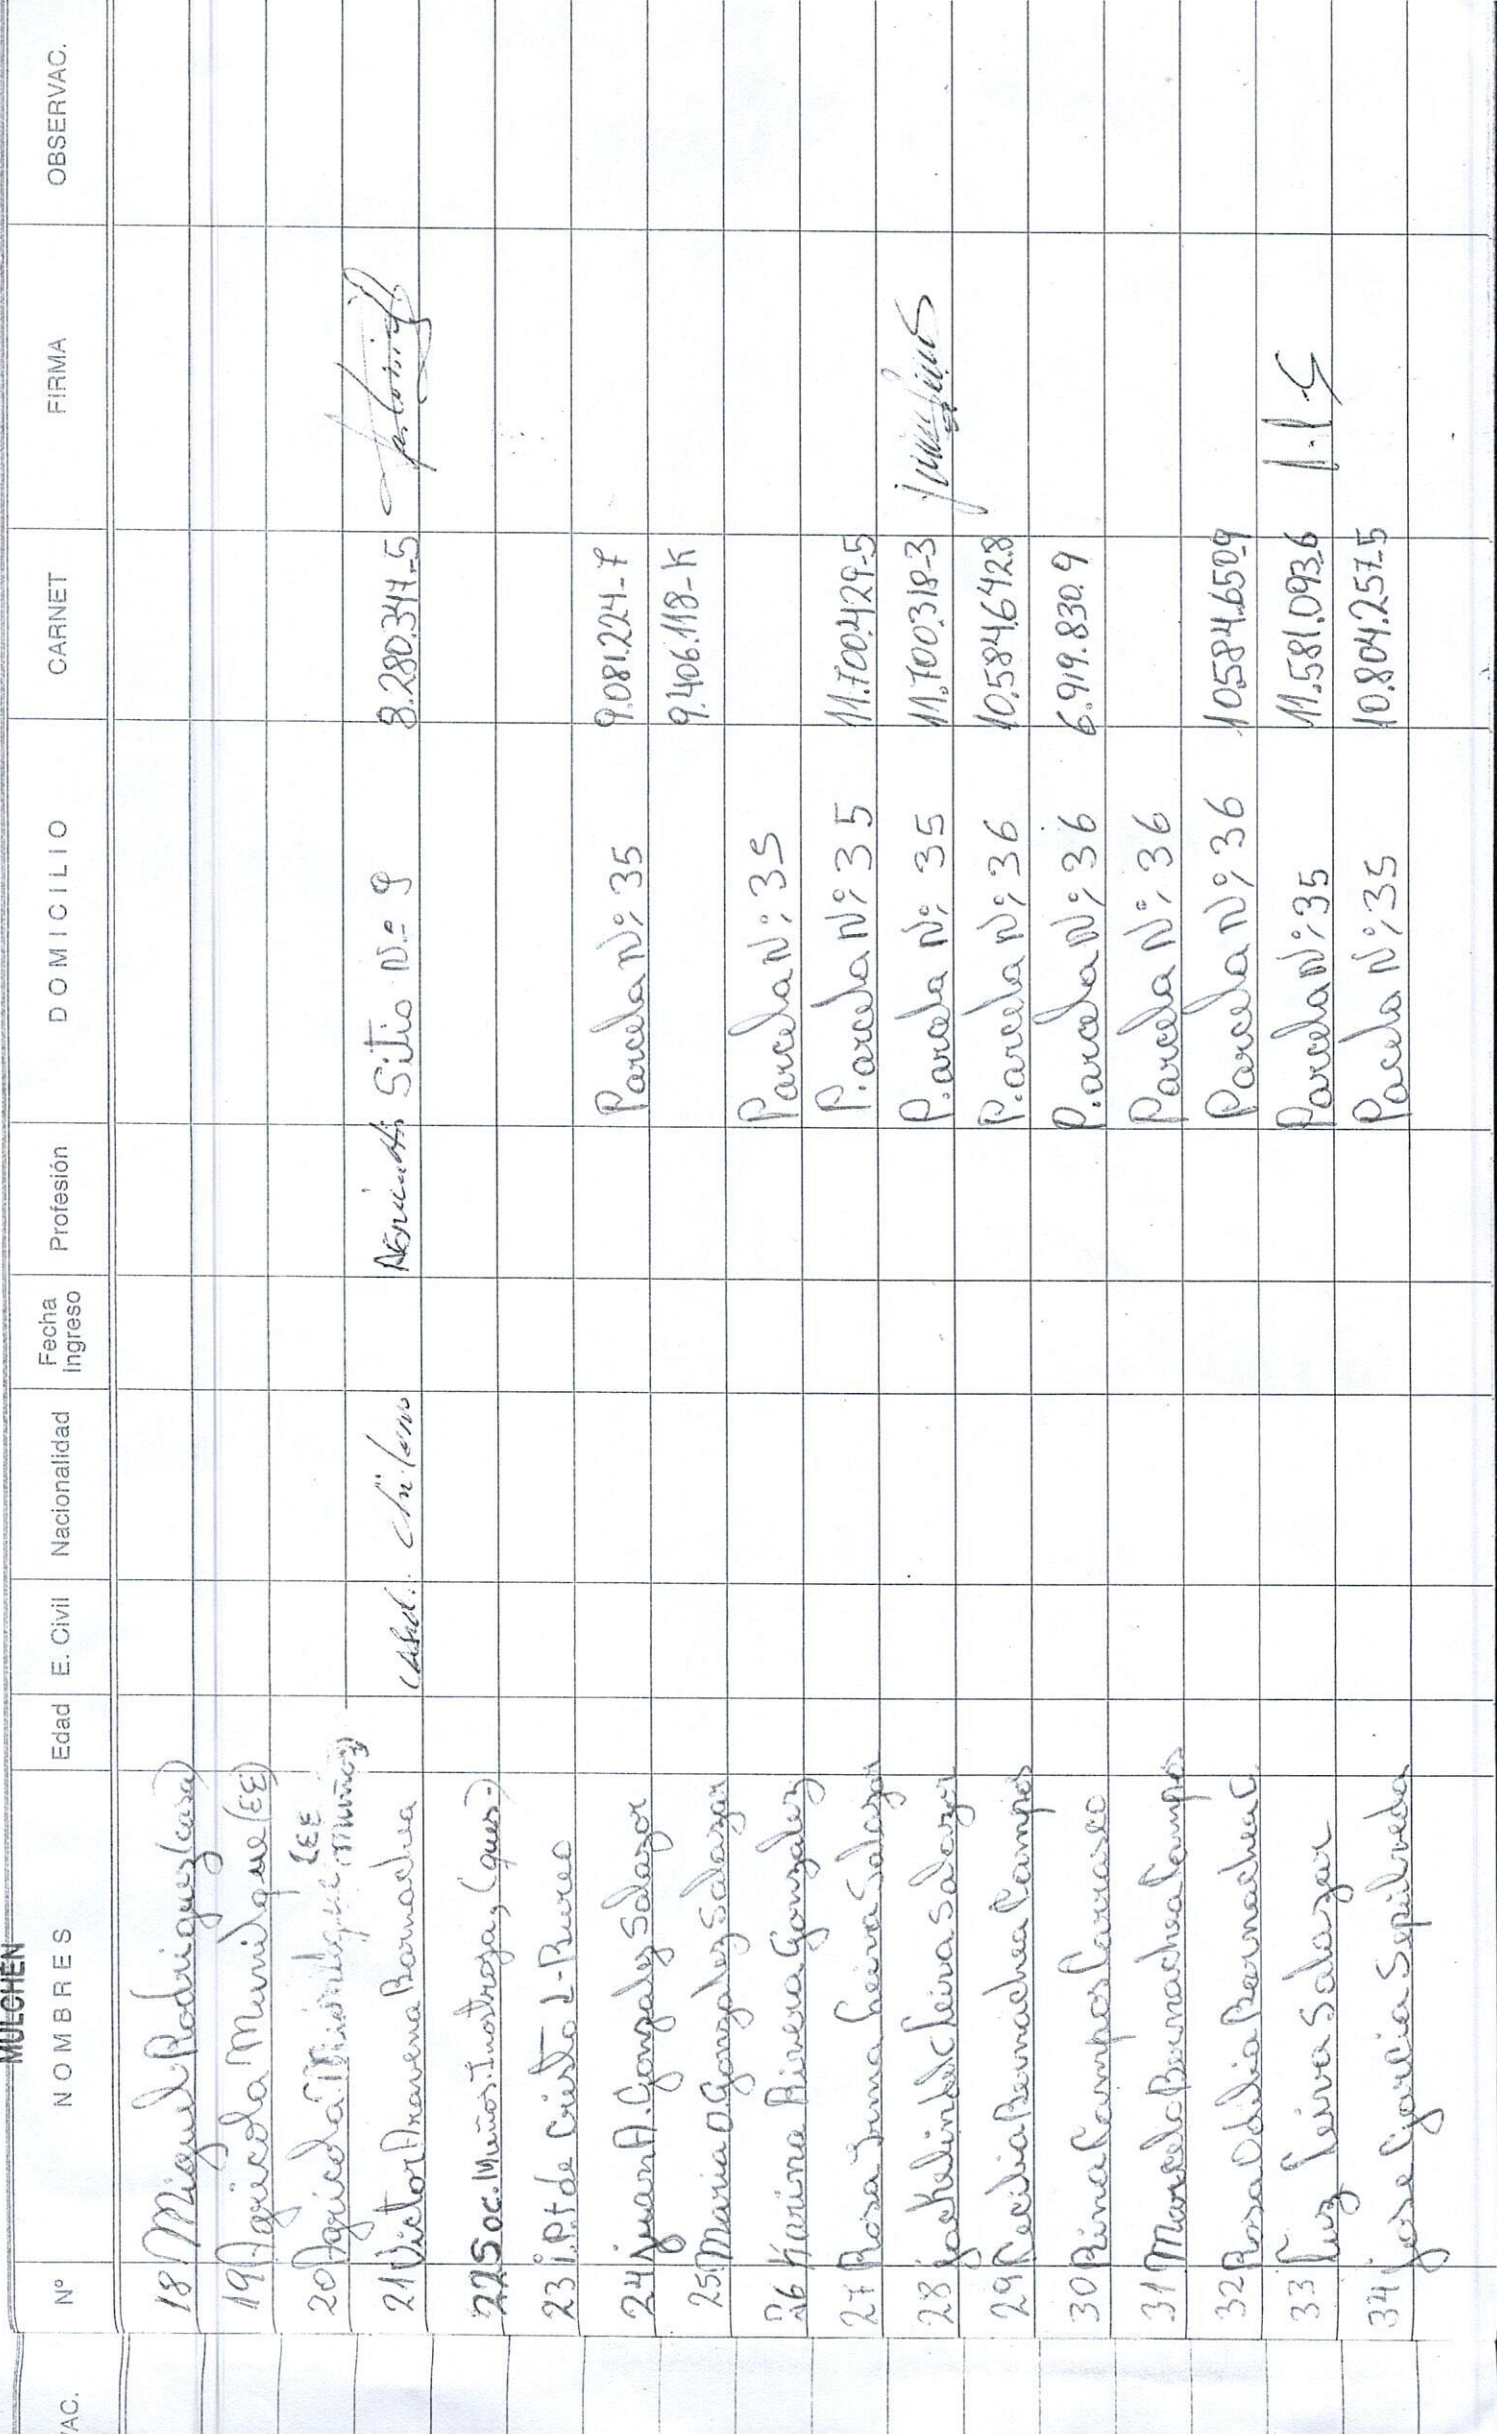 MULCHEN
Nº NOMBRES Edad E. Civil Nacionalidad Fecha ingreso Profesión DOMICILIO CARNET FIRMA OBSERVAC.
18 Miguel Rodriguez (casa)
19 Agricola Munilque (EE)
20 Agricola EE Muñoz)
21 Victor Aravena Barnachea casad. chileno Sitio N.º 9 8.280.347-5
22 Soc. Muños. Inostroza, (ques.)
23 i.P.t de Cristo L-Bureo
24 juan A. Gonzalez Salazar Parcela Nº 35 9.081.224-7
25 Maria O Gonzalez Salazar 9.406.118-K
26 Karina Rivera Gonzalez Parcela Nº 35
27 Rosa Irma Leiva Salazar P.arcela Nº 35 11.700.429-5
28 jackelinde Leiva Salazar P.arcela Nº 35 11.700.318-3
29 Cecilia Bernachea Campos P.arcela Nº 36 10.584.642.8
30 Rina Campos Carrasco P.arcela Nº 36 6.919.830.9
31 Marcela Bernachea Campos Parcela Nº 36
32 Rosa Odilia Bernachea C. Parcela Nº 36 10.584.650-9
33 Luz Leiva Salazar Parcela Nº 35 11.581.093.6
34 jose Garcia Sepulveda Pacela Nº 35 10.804.257-5
VAC.